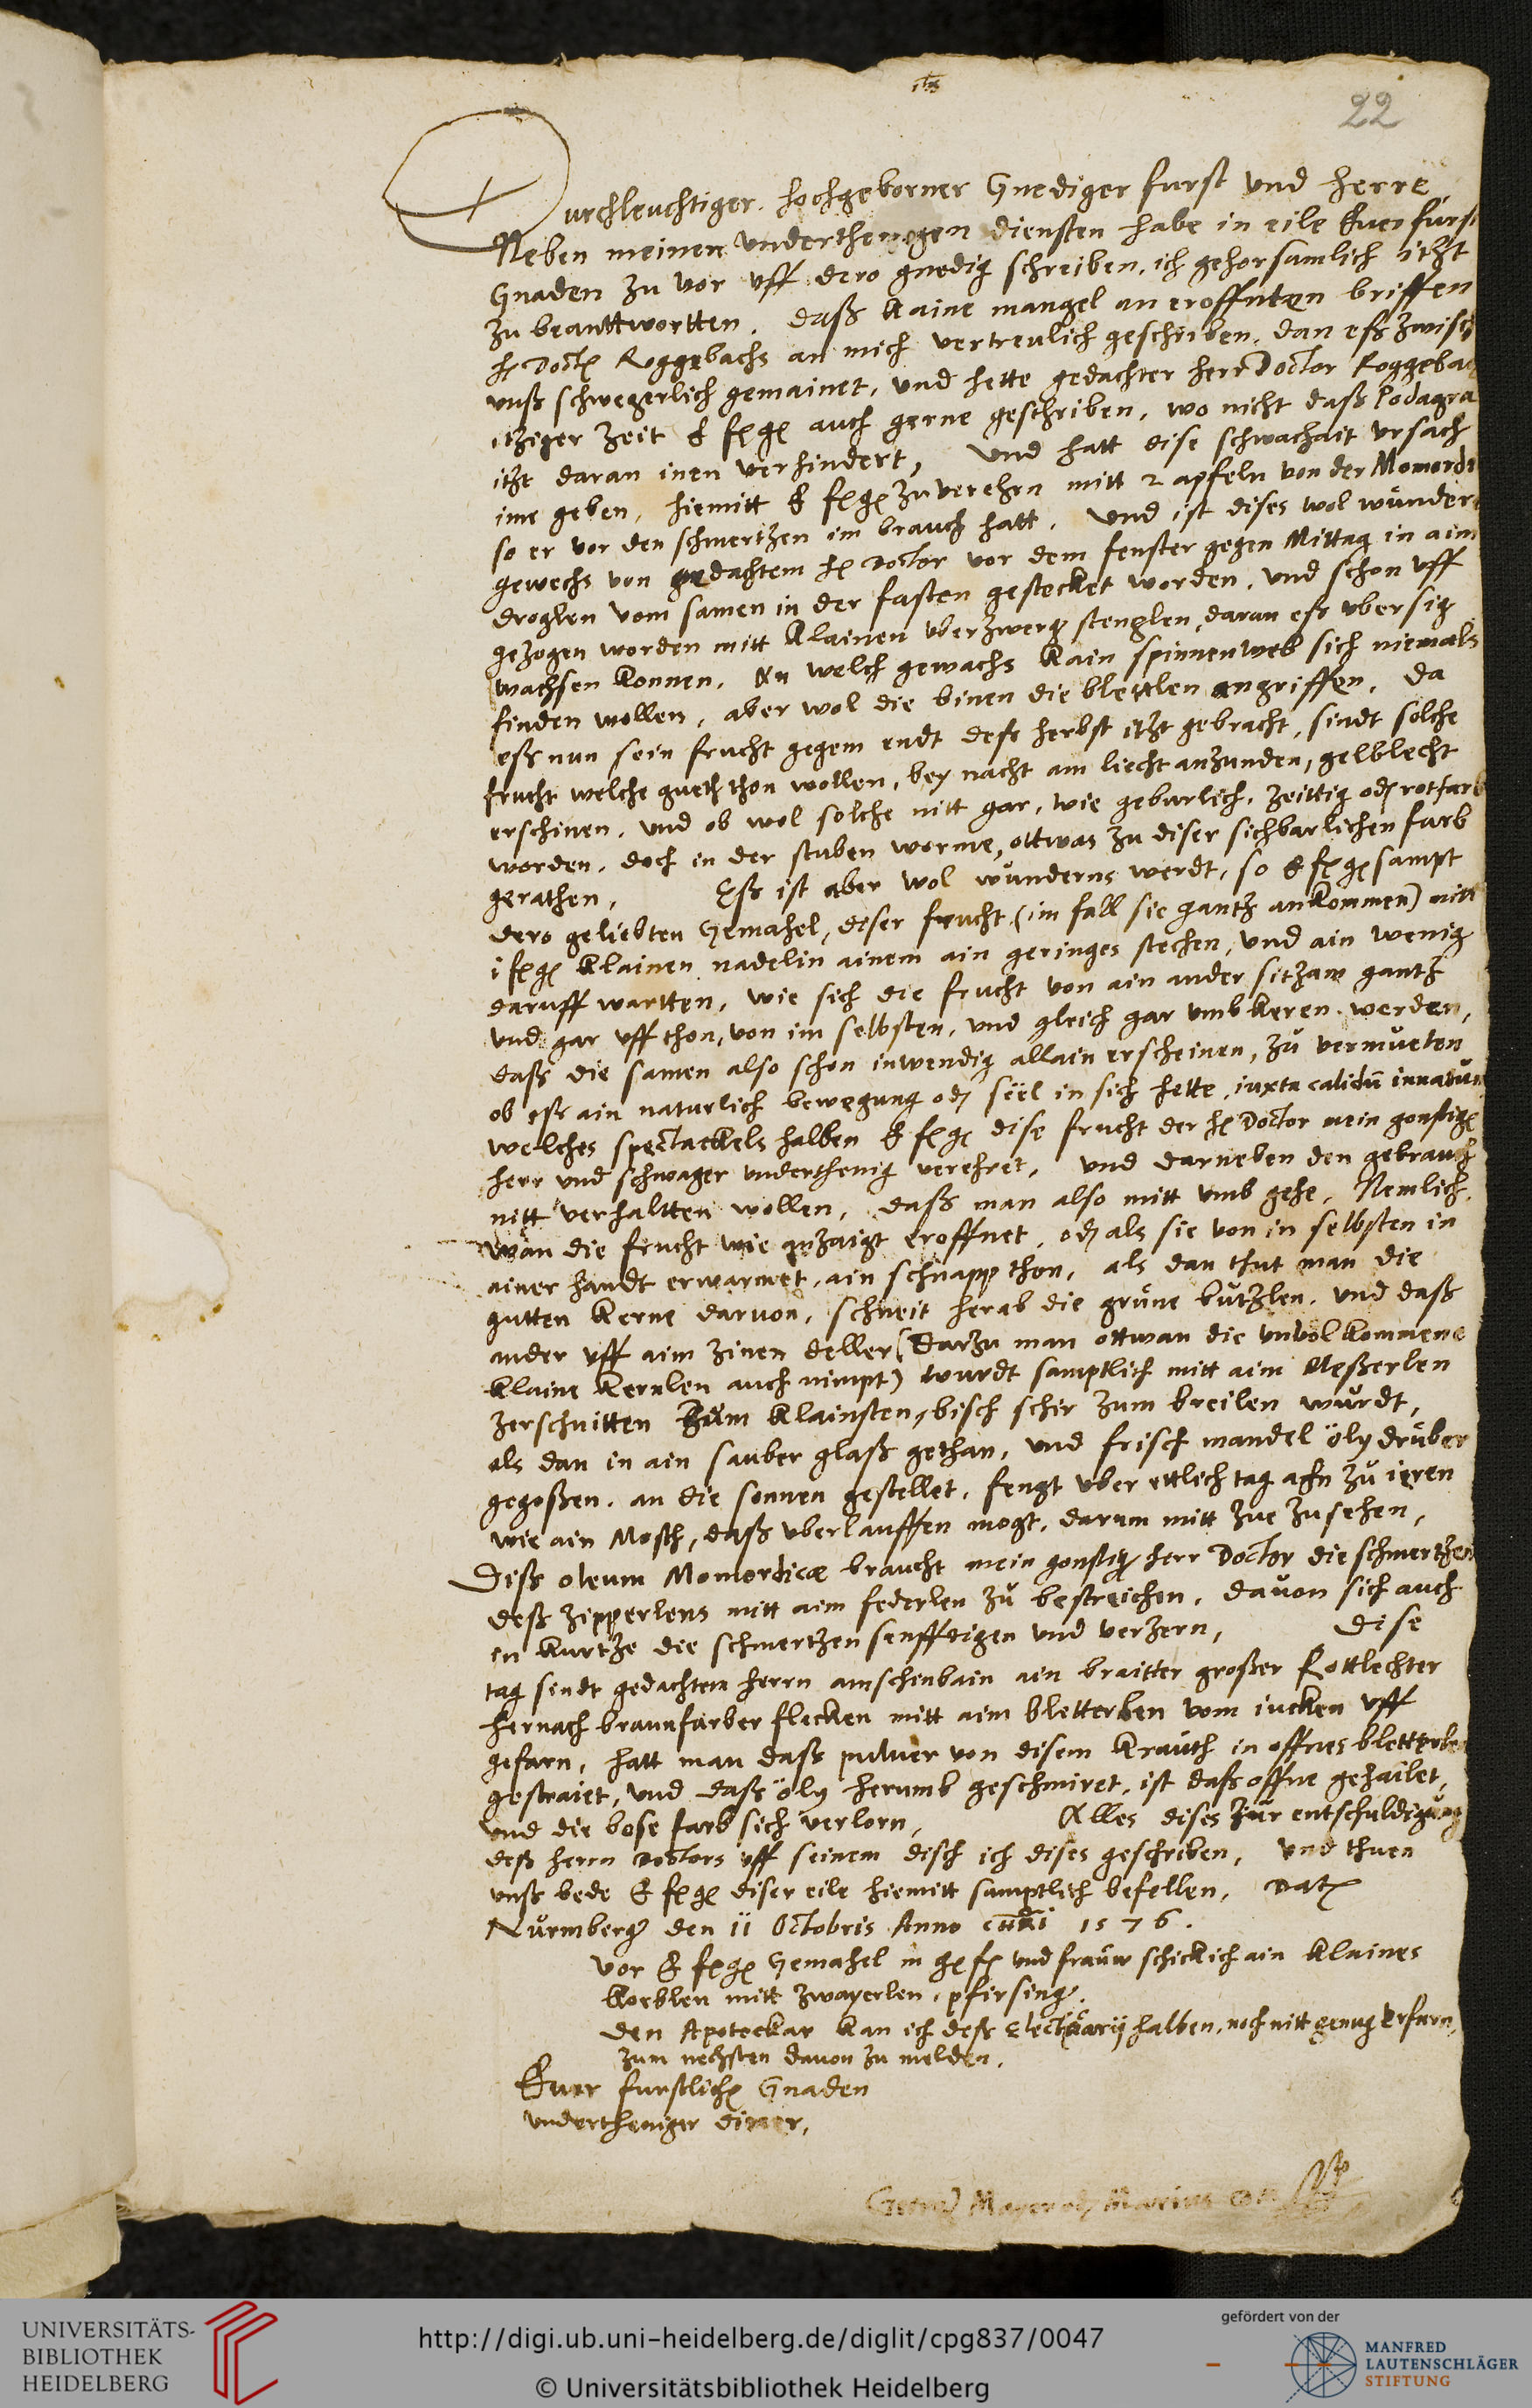 22
Durchleuchtiger. hochgeborner Gnediger furst und herre
Neben meinen underthenigen diensten habe in eile Euer furst
Gnaden zu vor uff dero gnedig schreiben, ich gehorsamlich itzt
zu beanttwortten. daß kaine mangel an eroffnten briffen
h doct Roggebachs an mich vertreulich geschriben, dan eß zwisch
unß schwegerlich gemainet, und hette gedachter herr Doctor Roggebach
itziger zeit E f g auch gerne geschriben, wo nicht daß Podagra
itzt daran inen verhindert, und hatt dise schwachait ursach
ime geben, hiemitt E f g zu verehrn mitt 2 apfeln von der Momordi
so er vor den schmertzen im brauch hatt. und ist dises wol wunder
gewechs von gedachtem h doctor vor dem fenster gegen Mittag in aim
droglen vom samen in der fasten gestecket worden, und schon uff
gezogen worden mitt klainen uberzwerg stenglen, daran eß ubersig
wachsen konnen. An welch gewachs kain spinnenweb sich niemals
finden wollen, aber wol die binen die blettlen angriffen. Da
eß nun sein frucht gegem endt deß herbst itzt gebracht, sindt solche
frucht welche gueth thon wollen, bey nacht am liecht anzunden, gelblecht
erschinen, und ob wol solche nitt gar, wie geburlich, zeittig od rotfarb
worden, doch in der stuben worme, ottwas zu diser sichbarlichen farb
gerathen, Eß ist aber wol wunderns werdt, so E f g sampt
dero geliebten Gemahel, diser frucht (im fall sie gantz ankommen) mitt
i f g klainen nadelin ainem ain geringes stechen, und ain wenig
daruff wartten, wie sich die frucht von ain ander sitzam gantz
und gar uff thon, von im selbsten, und gleich gar umb keren werden,
daß die samen also schon inwendig allain erscheinen, zu vermueten
ob eß ain naturlich bewegung od seel in sich hette, iuxta calidū innatum
welches spectackels halben E f g dise frucht der h Doctor mein gonstig
herr und schwager underthenig verehret, und darneben den gebrauch
nitt verhaltten wollen, daß man also mitt umb gehe, Nemlich.
wan die frucht wie anzaigt eroffnet, od als sie von in selbsten in
ainer handt erwarmet, ain schnapp thon, als dan thut man die
gutten kerne darvon, schneit herab die grune butzlen, und daß
ander uff aim zinen deller (darzu man ottwan die unvolkommene
klaine kernlen auch nimpt) wurdt samptlich mitt aim Meßerlen
zerschnitten zum klainsten, bisch schir zum breilen wurdt,
als dan in ain sauber glaß gethan, und frisch mandel öly druber
gegoßen, an die sonnen gestellet, fengt uber ettlich tag ahn zu ieren
wie ain Mosth, daß uberlauffen mogt, darum mitt zue zusehen,
Diß oleum Momordicæ braucht mein gonstig herr Doctor die schmertzen
deß zipperlens mitt aim federlen zu bestreichen, davon sich auch
in kurtze die schmertzen senfftigen und verzern, Dise
tag sindt gedachtem herrn am schinbain ain braitter großer Rottlechter
hernach braunfarber flecken mitt aim bletterlen vom iucken uff
gefarn, hatt man daß pulver von disem krauth in offnes bletterlen
gestraiet, und daß öly herumb geschmiret, ist daß offne gehailet,
und die bose farb sich verlorn, Alles dises zur entschuldigung
deß herrn doctors uff seinem disch ich dises geschriben, und thuen
unß bede E f g diser eile hiemitt samptlich befellen, Dat
Nurmberg den 11 Octobris Anno 1576.
vor E f g Gemahel m g f und frauw schick ich ain klaines
korblen mitt zwayerlen, pfirsing.
Den Apotecker kan ich deß Electuarij halben, noch nitt genug erfarn,
zum nechsten davon zu melden.
Euer furstlich Gnaden
undertheniger diener,
Georg Mayer od Marius
UNIVERSITÄTS-
BIBLIOTHEK
HEIDELBERG
http://digi.ub.uni-heidelberg.de/diglit/cpg837/0047
© Universitätsbibliothek Heidelberg
gefördert von der
MANFRED
LAUTENSCHLÄGER
STIFTUNG